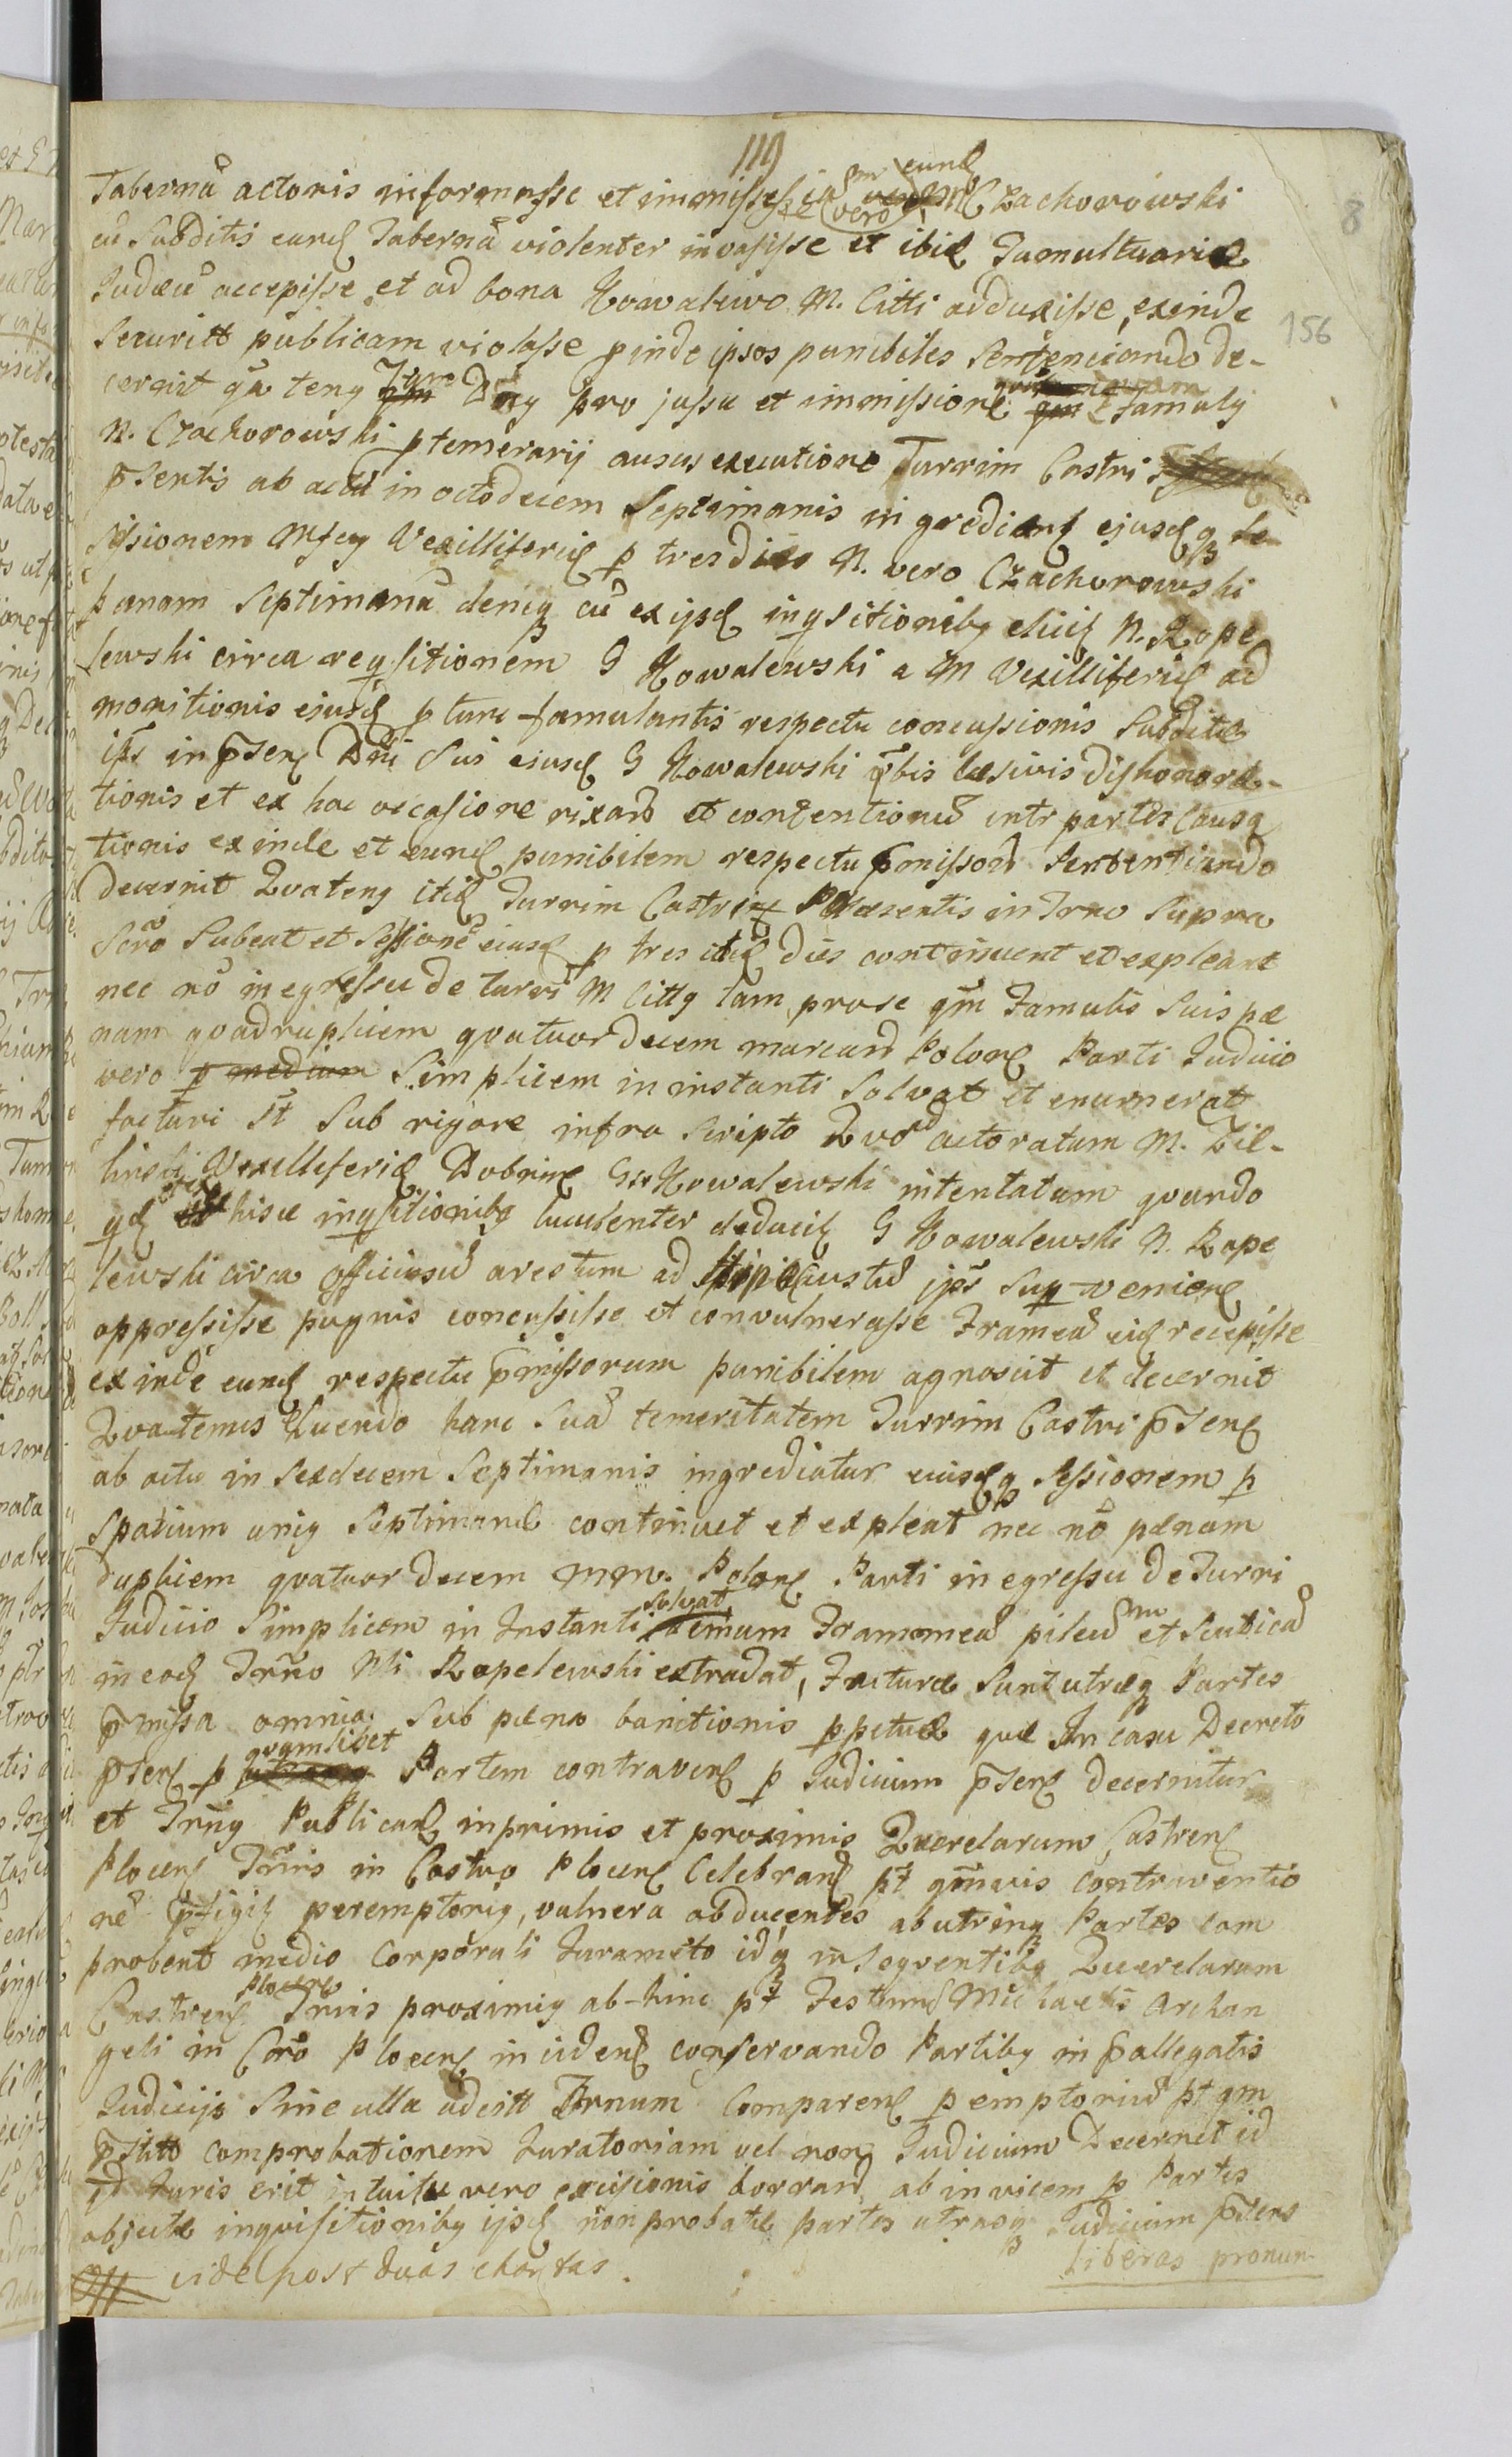 119
8
156
Tabernã actoris informasse et immisisse vero eund N Czachorowski
cũ Subditis eand Tabernã violenter invasisse et ibid Tumultuarie
Judæũ accepisse et ad bona Kowalewo M. Citti adduxisse, exinde
Securitt publicam violasse pinde ipsos punibiles Sentenciando de-
cernit qua teng Dng pro jussu et immissione Famuly
N. Czachorowski ptemerarij ausus executione Turrim Castri
p̃sentis ab actu in octodecem Septimanis in gredient ejusdq se
ssionem Mfcg Vexilliferid p tres dies N. vero Czachorowski
p unam Septimanã deniq cũ ex ijsd inqsitionibg elicit N. Rope
lewski circa reqsitionem G Kowalewski a M Vexilliferid ad
monitionis ejusd p tunc famulantis respectu concussionis Subditd
ips in p̃send Dñi Sui eiusd G Kowalewski v̄bis læsivis dishonora-
tionis et ex hac occasione rixarũ et contentionũ intr partes causa
tionis exinde et eund punibilem respectu p̃missorũ Sententiando
decernit Quateng itid Turrim Castri Præsentis in Trno Supra
Scr̃o Subeat et Sessionẽ eiusd p tres itid dies continuent et expleant
nec nõ in egressu de turri M Cittg tam pro se qm̃ Famulis Suis pæ
nam quadruplicem quatuordecem marcarũ Polond Parti Judicio
vero Simplicem in instanti Solvat et enumerat
facturi st Sub rigore infra Scripto Quod actoratum M. Zil-
linski Vexilliferid Dobrind Gso Kowalewski intentatum quando
qd hisce inqsitionibg luculenter deducit G Kowalewski N. Rope
lewski circa officiosũ arestum ad ips̃ Sup-veniend
oppressisse pugnis concussisse et convulnerasse Frameã eid recepisse
exinde eund respectu p̃missorum punibilem agnoscit et decernit
Quatenus luendo hanc Suã temeritatem Turrim Castri p̃send
ab actu in Sexdecem Septimanis ingrediatur eiusdq Sessionem p
Spatium unig Septimand continuet et expleat nec nõ pænam
duplicem quatuordecem mm. Polond Parti in egressu de Turri
Judicio Simplicem in Instanti Solvat demum Frammeã pileũ et Scuticã
in eod Trño Nli Ropelewski extradat, Facturæ Sunt utræq Partes
p̃missa omnia Sub pæna banitionis ppetuæ quæ In casu Decreto
p̃send p quamlibet Partem contravend p Judicium p̃send decernitur
et Trñg Publicand inprimis et proximis Querelarum Castrend
Plocend Trñis in Castro Plocend Celebrand pt qm̃vis contraventio
nẽ p̃figit peremptorig, vulnera abducentes ab utrinq Partes com
probent medio Corporali Juramẽto idq in Seqventibg Querelarum
Castrend Plocend Trñis proximig ab-hinc pt Festum S Michaelis Archan
geli in Cõro Plocend incidend conservando Partibg in p̃allegatis
Judicijs Sine ulla adcitt Trnum Comparend pemptoriũ pt qm
p̃stitt comprobationem Juratoriam vel non Judicium Decernet id
qd Juris erit intuitu vero excisionis borrarũ ab invicem p Partes
objectd inquisitionibg ijsd non probatd partes utrasq Judicium p̃sens
liberas pronun-
vide post duas chartas.